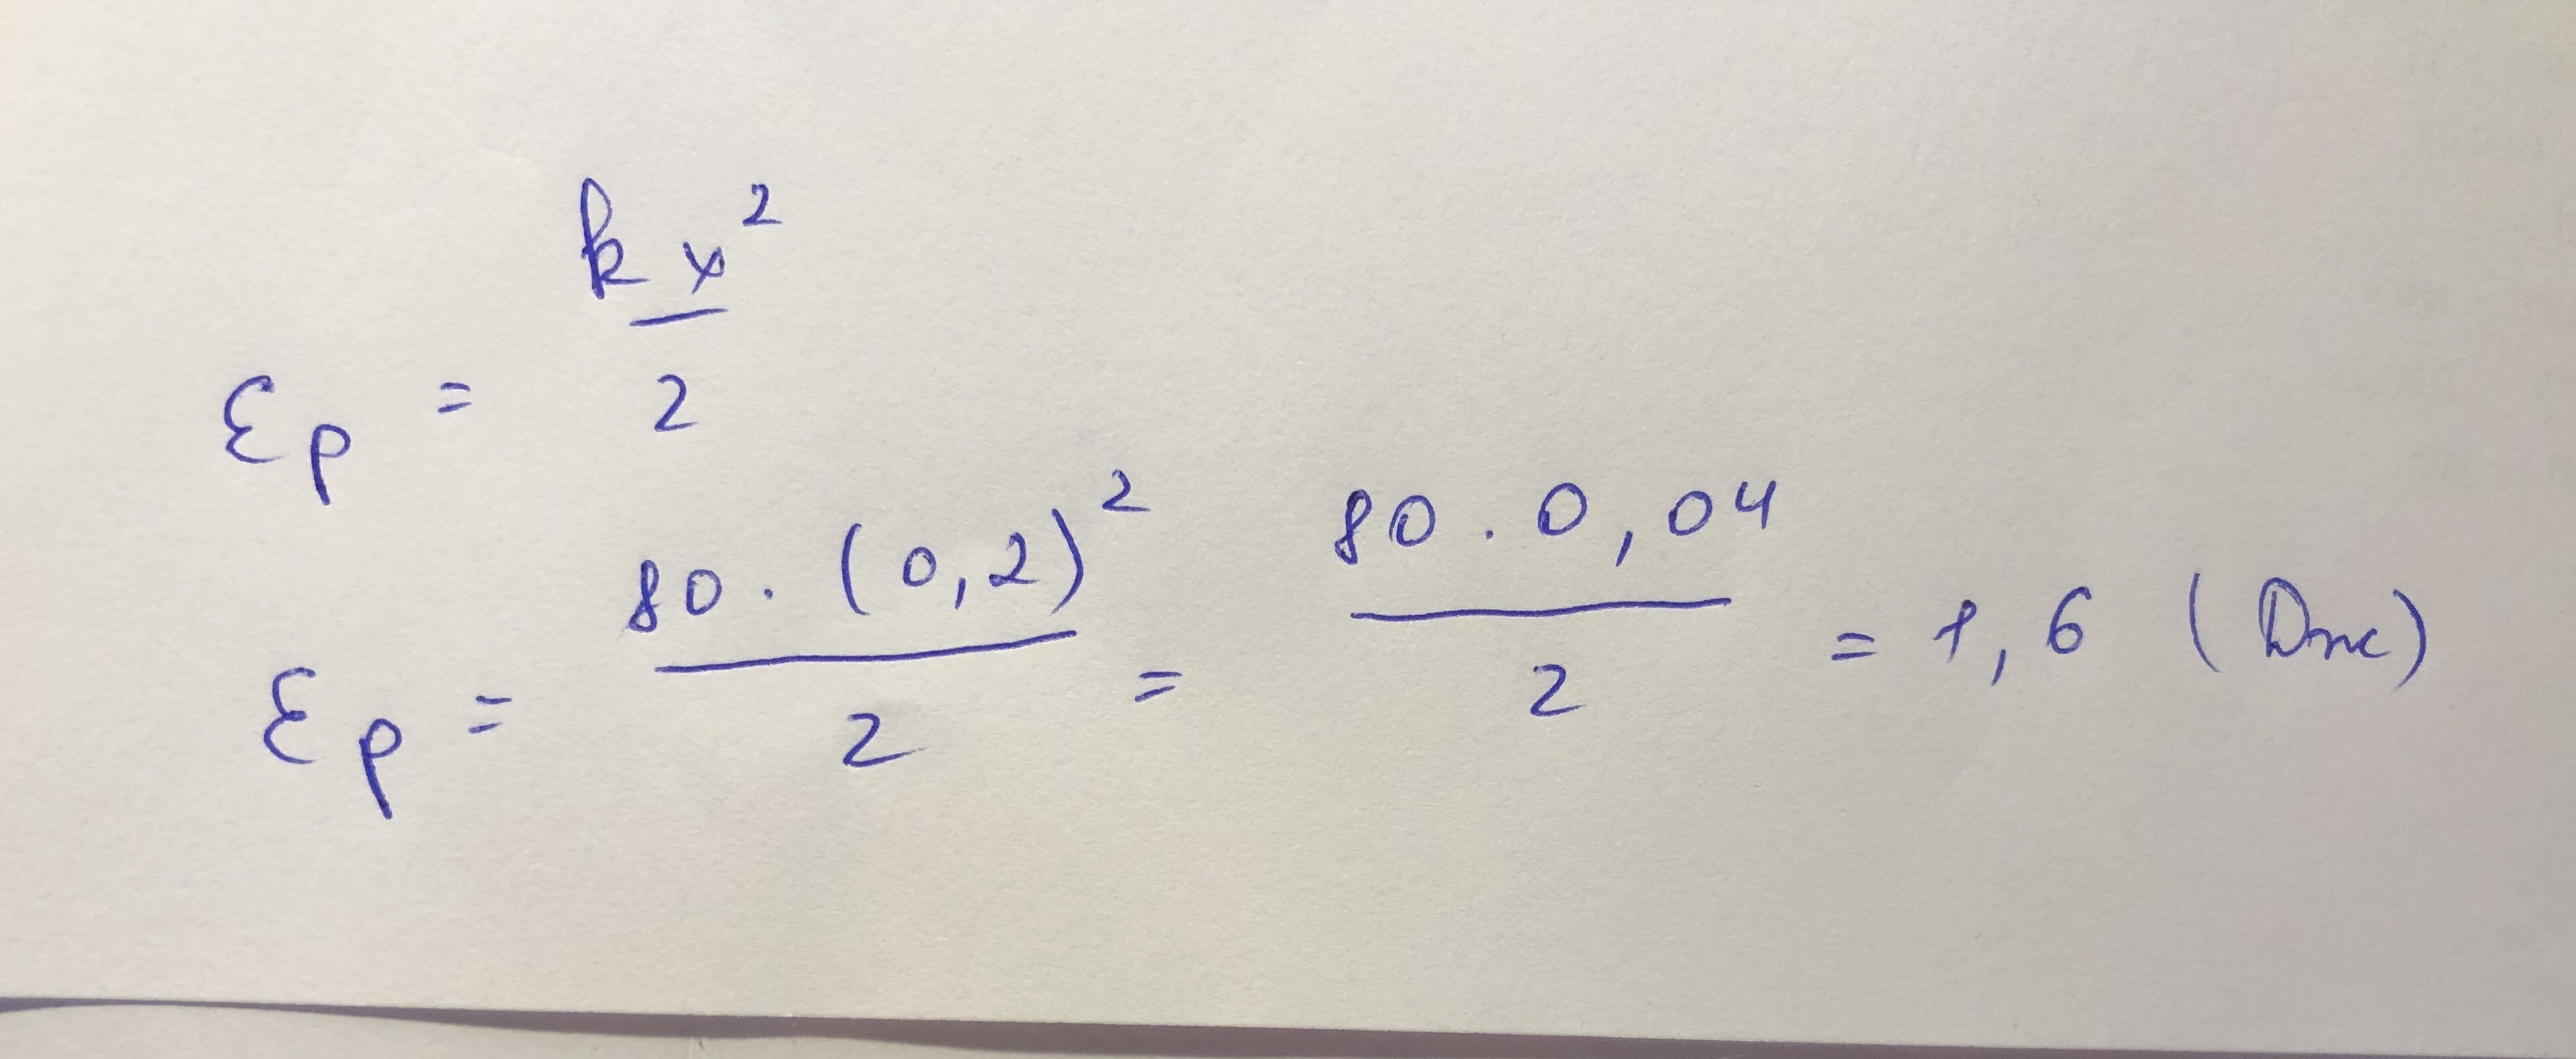 Ep = kx²/2
Ep = 80 · (0,2)²/2 = 80 · 0,04/2 = 1,6 (Дж)